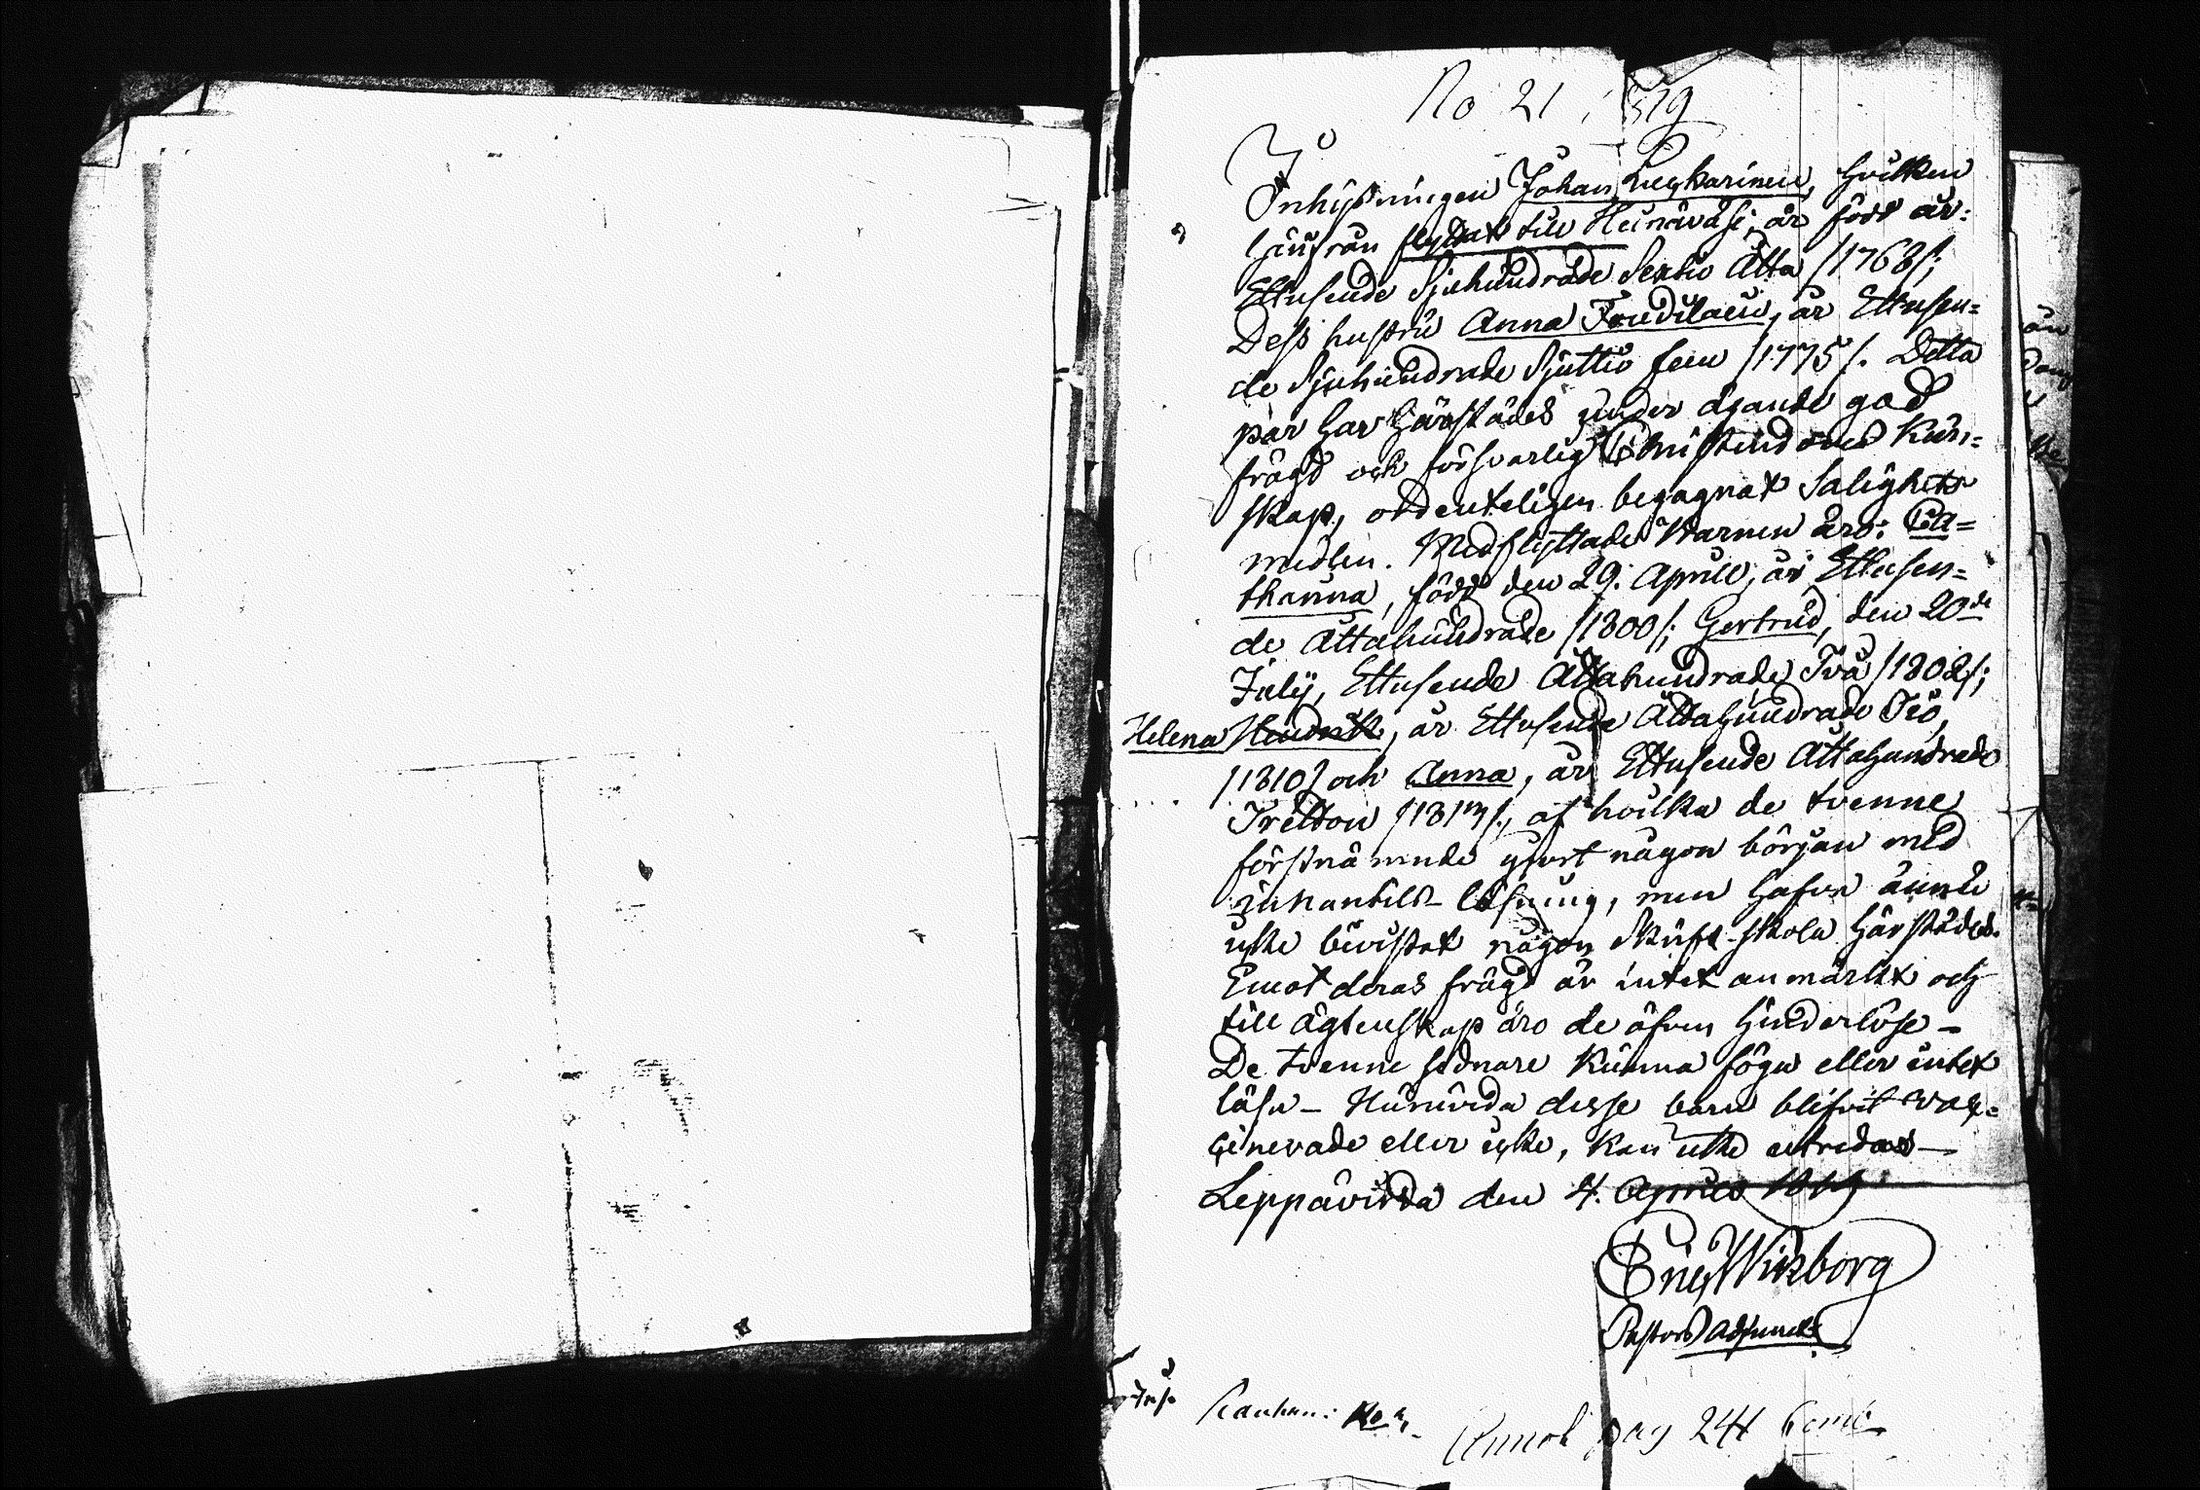 No 21, 1819
Inhysningen Johan Luukarinen, hvilken
härifrån flyttat till Heinäväsi, är född år:
Ettusende Sjuhundrade Sextio Åtta /1768/;
Dess hustru Anna Toudilain, år Ettusen=
de Sjuhundrade Sjuttio fem /1775/. Detta
par har härstädes under ägande god
frägd och försvarlig Christendoms Kun=
skap, ordenteligen begagnat Salighets
medlen. Medflyttade Barnen äro: Ca=
tharina, född den 29. Aprill, år Ettusen=
de Åttahundrade /1800/; Gertrud, den 20de
July, Ettusende Åttahundrade Två /1802/;
Helena Hindrik, år Ettusende Åttahundrade Tio,
/1810/ och Anna, år Ettusende Åttahundrade
Tretton /1813/, af hvilka de tvenne
förstnämnde gjort någon början med
innantils läsning, men hafva ännu
icke bevistat någon Skrift-skola härstädes.
Emot deras frägd är intet anmärkt och
till ägtenskap äro de äfven hinderlöse –
De tvenne sednare kunna föga eller intet
läsa – Huruvida desse barn blifvit vac=
cinerade eller icke, kan icke utredas –
Leppävirda den 4. Aprill 1819
Eric Wikborg
Pastors Adjunct
pag 241